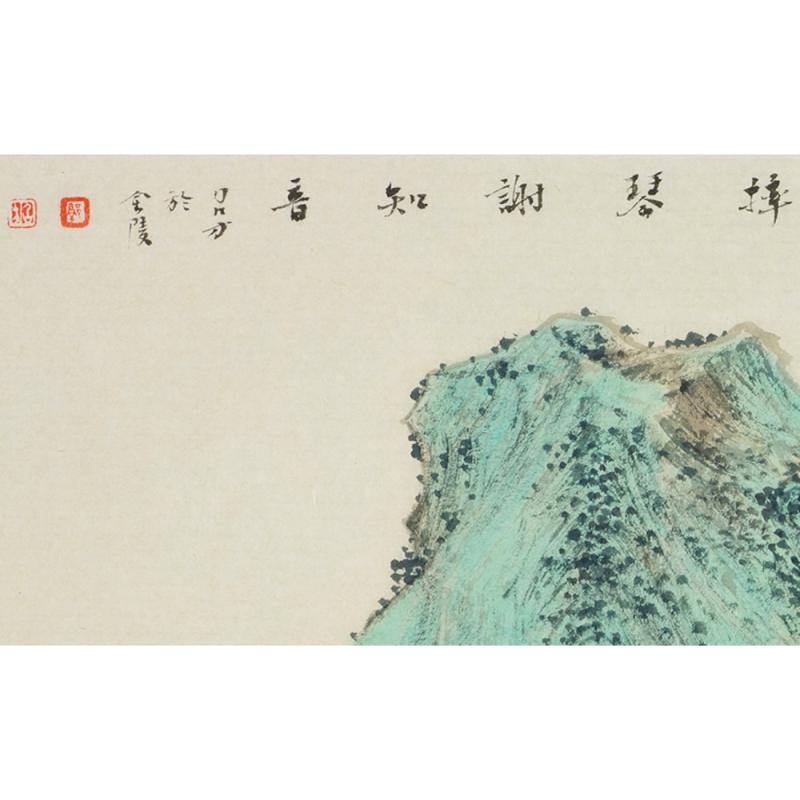 摔琴謝知音
於
金陵